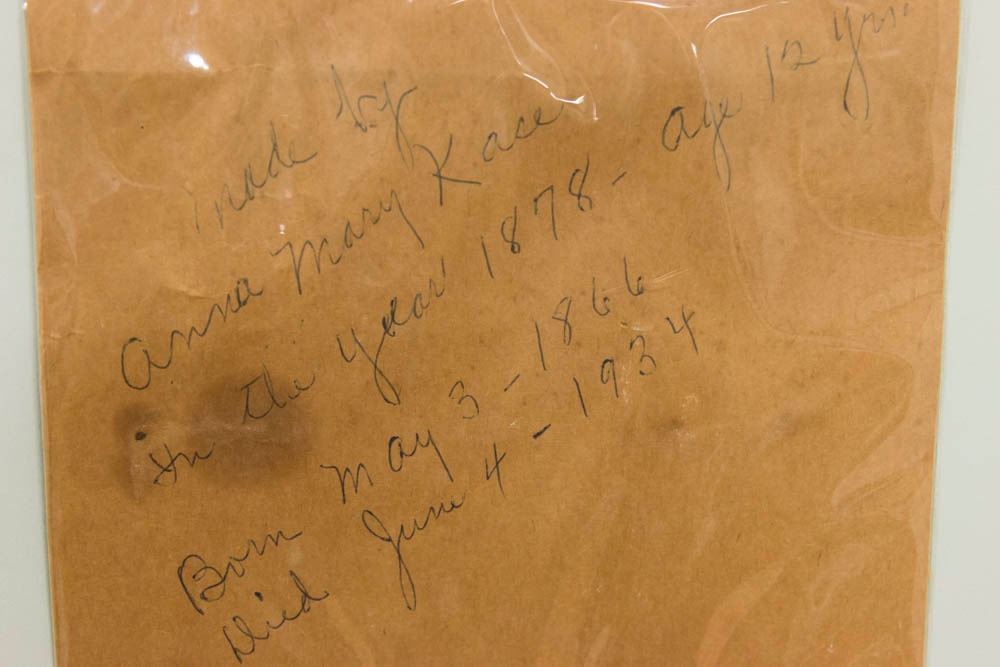 made by
Anna Mary Kace
In the year 1878 - age 12 yrs.
Born May 3 - 1866
Died June 4 - 1934